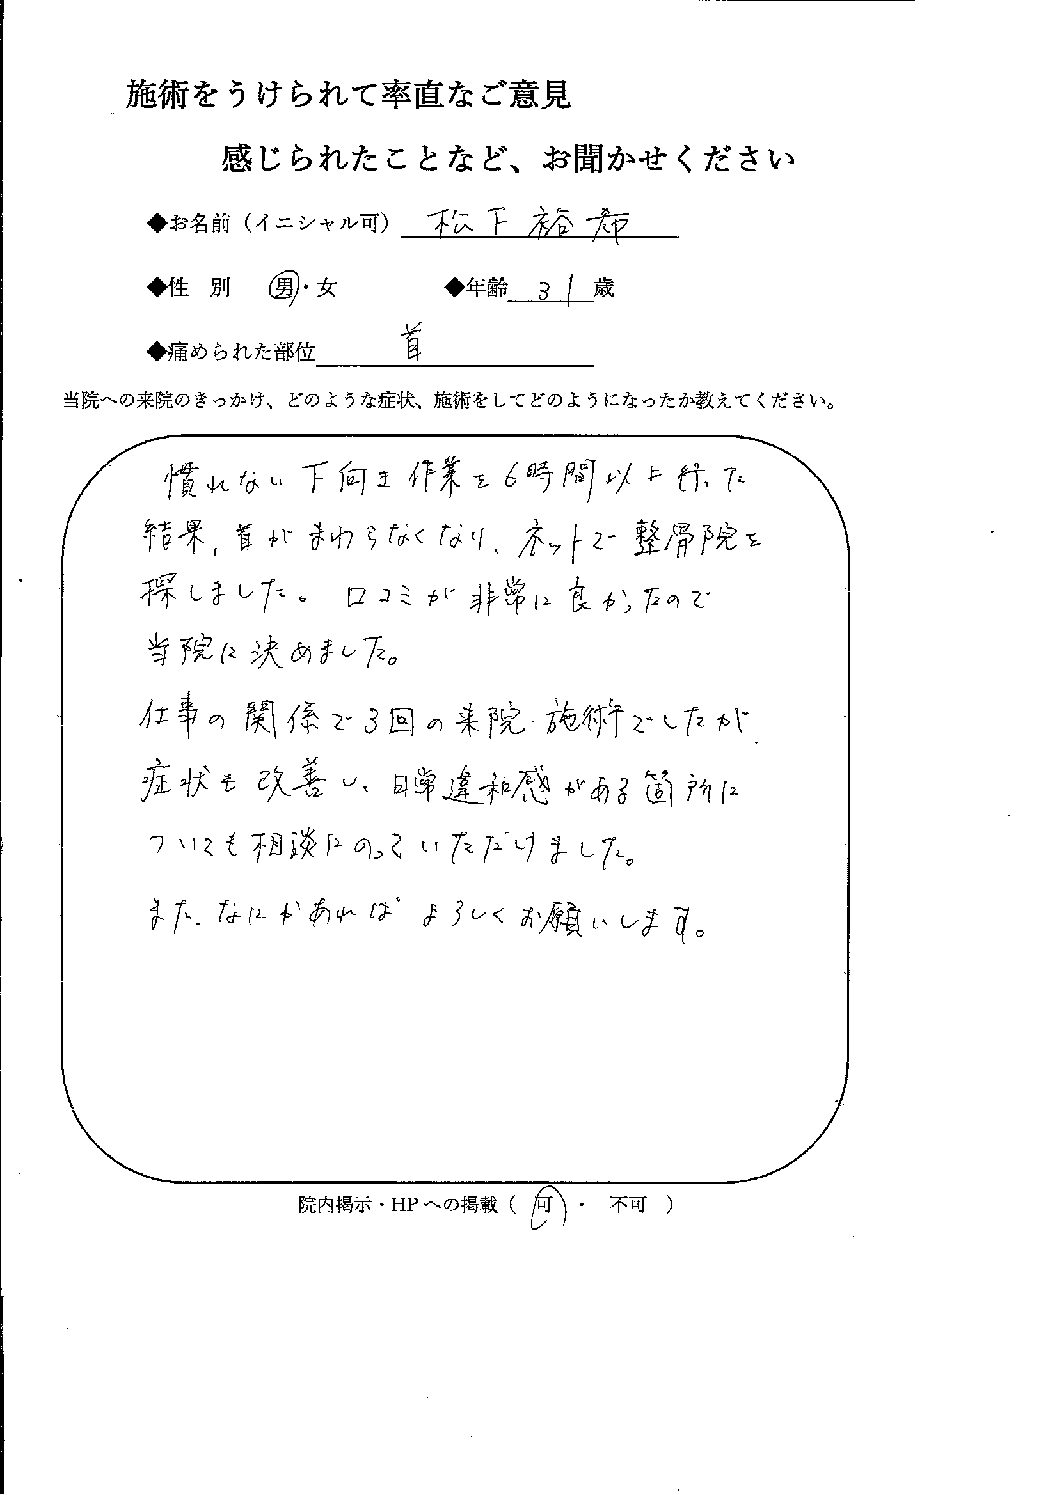 施術をうけられて率直なご意見
感じられたことなど、お聞かせください
◆お名前（イニシャル可） 松下裕希
◆性 別 男・女 ◆年齢 31 歳
◆痛められた部位 首
当院への来院のきっかけ、どのような症状、施術をしてどのようになったか教えてください。
慣れない下向き作業を6時間以上行った
結果、首がまわらなくなり、ネットで整骨院を
探しました。口コミが非常に良かったので
当院に決めました。
仕事の関係で3回の来院・施術でしたが
症状も改善し、日常違和感がある箇所に
ついても相談にのっていただけました。
また、なにかあればよろしくお願いします。
院内掲示・HPへの掲載（ 可 ・ 不可 ）